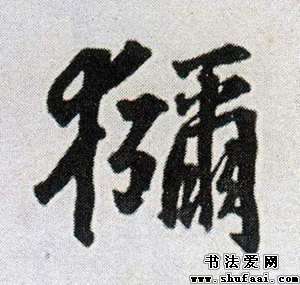 獼
书法爱网
www.shufaai.com